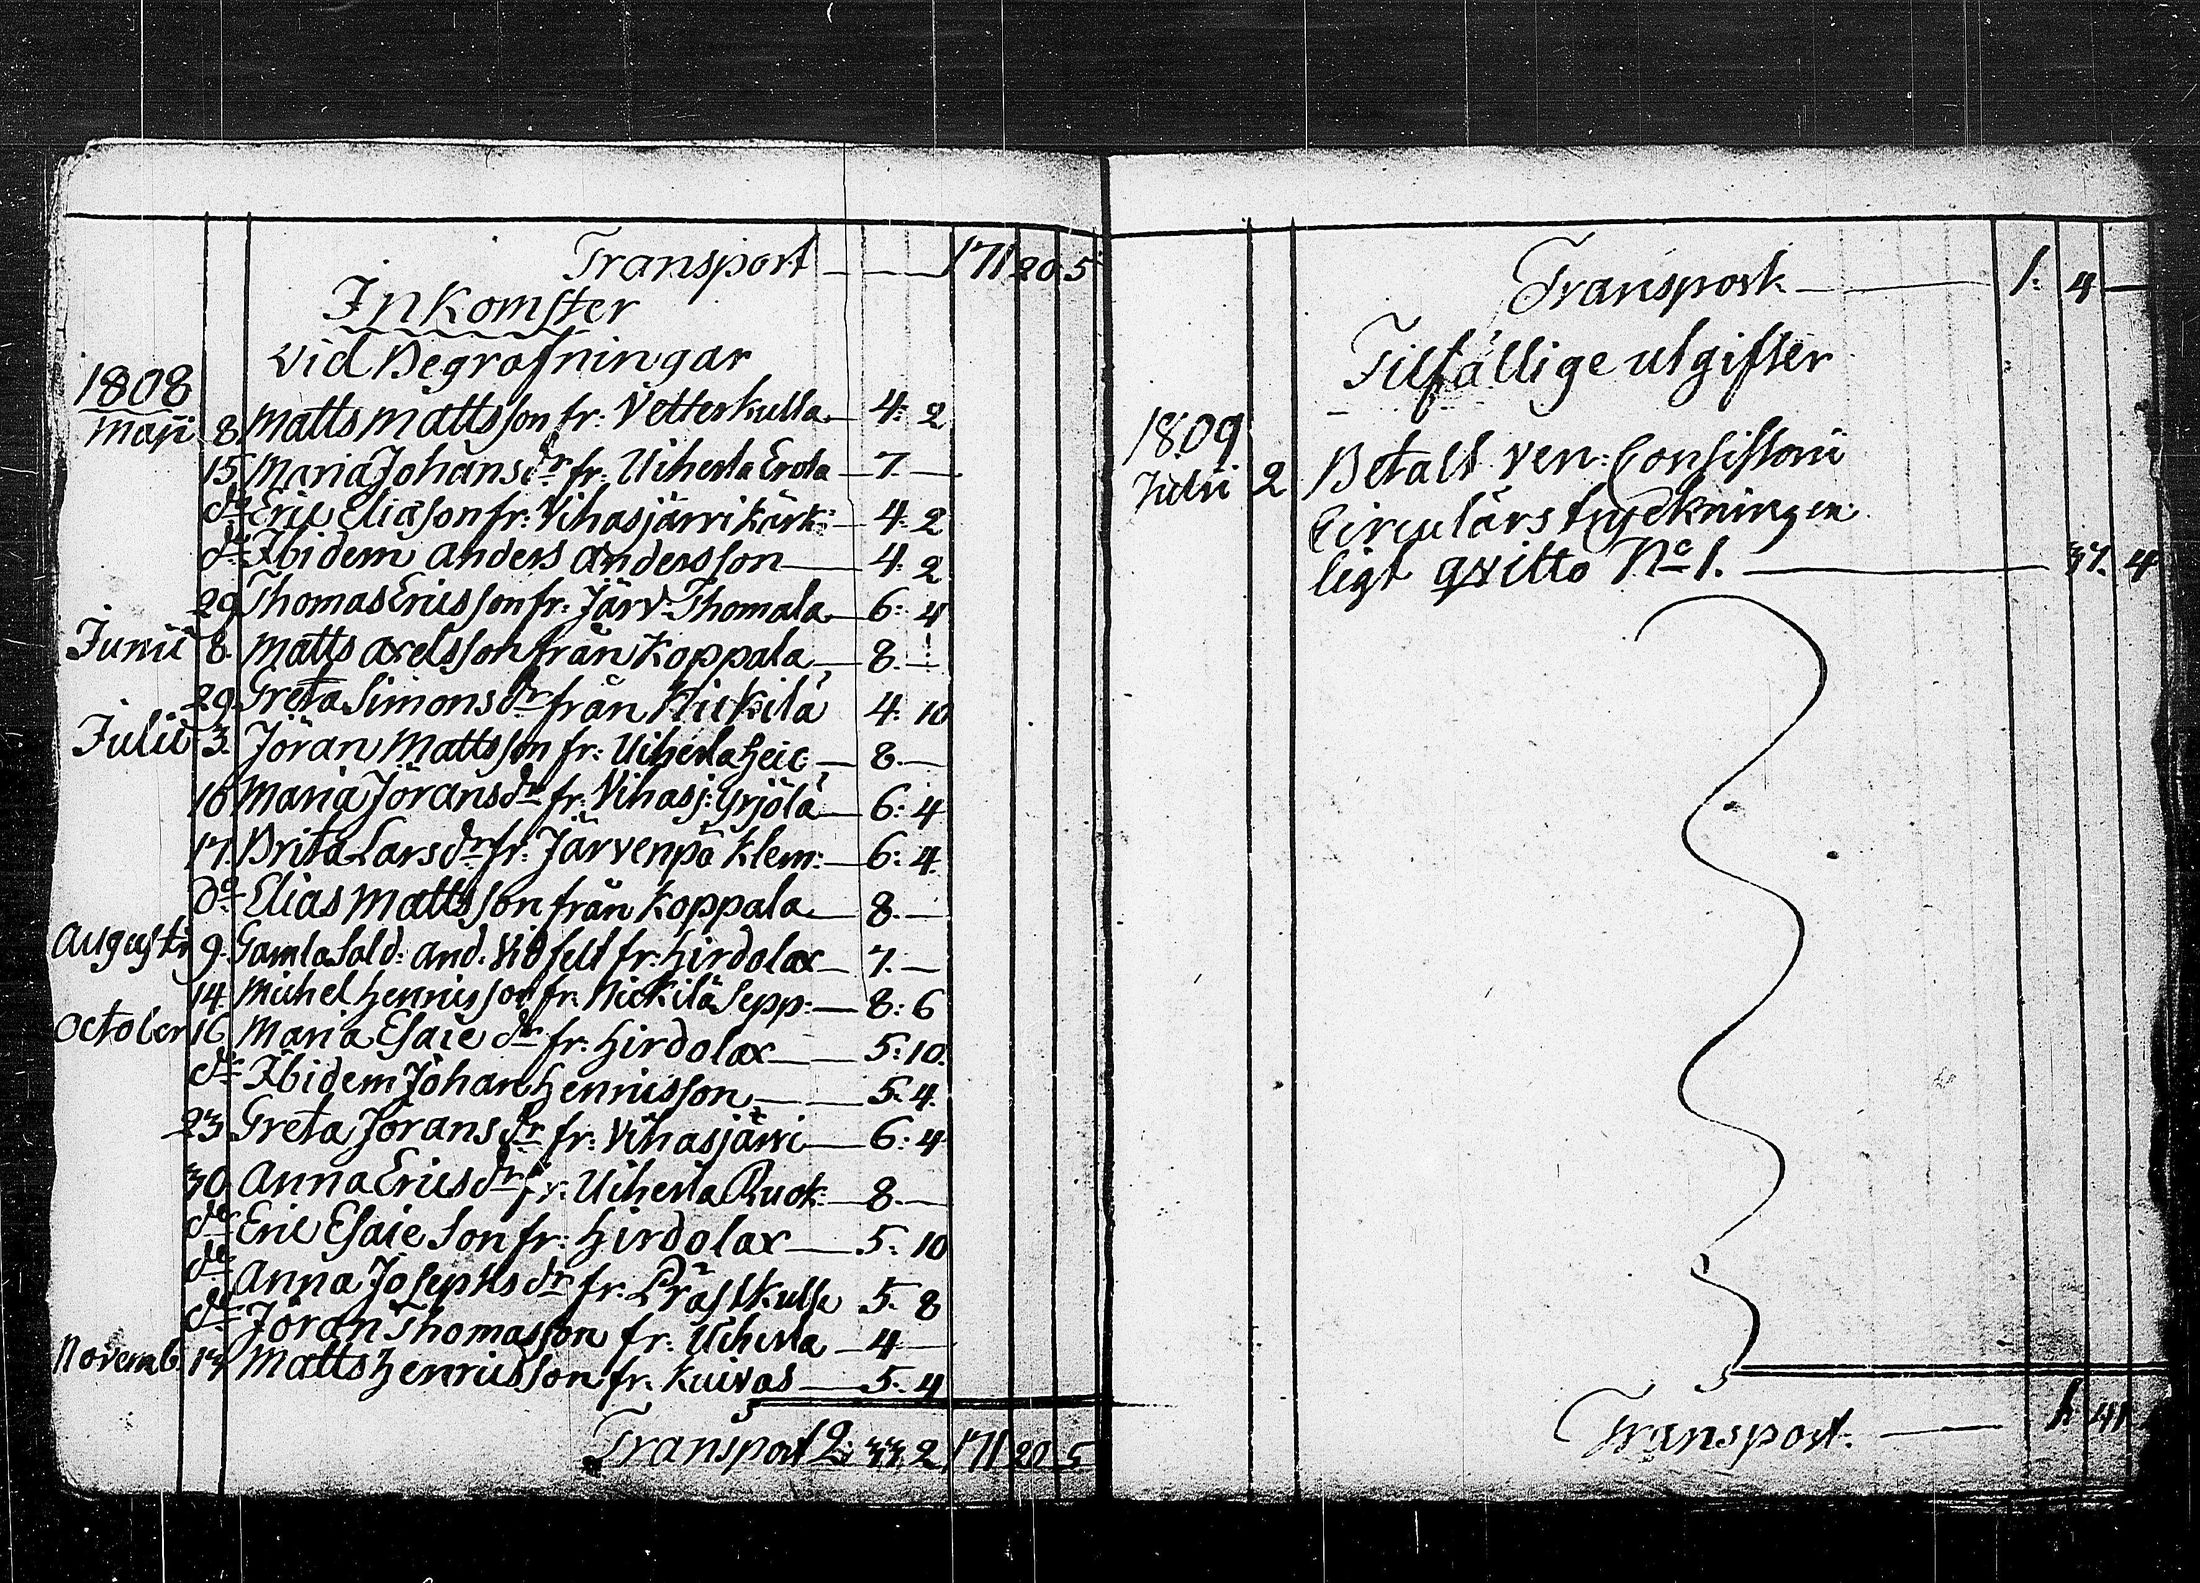 Transport — 171 20 5
Inkomster
vid Begrafningar
1808
Maji 8 Matts Mattsson fr: Vetterkulla — 4: 2
15 Maria Johans dr fr: Uiherla Erola — 7. —
do Eric Eliason fr: Vihasjärvi Kärk: — 4: 2
do Ibidem Anders Andersson — 4: 2
29 Thomas Ericsson fr: Järv: Thomala — 6: 4
Junii 8. Matts Axelsson från Koppala — 8. —
29 Greta Simons dr från Nickilä 4: 10
Julii 3. Jöran Mattsson fr: Uiherla Heic: — 8. —
10 Maria Jörans dr fr: Vihasj: Yrjölä — 6: 4
17. Brita Lars dr fr: Järvenpä Klem: — 6: 4.
do Elias Mattsson från Koppala — 8. —
Augusti 9. Gamla Sold: And. Vidfelt fr: Hirdolax — 7. —
14 Michel Henricsson fr: Nickilä Sepp: — 8: 6
October 16 Maria Esaie dr fr: Hirdolax — 5: 10.
do Ibidem Johan Henricsson — 5. 4.
23 Greta Jörans dr fr: Vihasjärvi — 6: 4
30 Anna Erics dr fr: Uiherla Ruok: — 8. —
do Eric Esaie Son fr: Hirdolax — 5: 10
do Anna Josephs dr fr: Prästkulla 5. 8
do Jöran Thomasson fr: Uiherla — 4 —
Novemb. 13 Matts Henricsson fr: Kuivas — 5. 4
Transport 2: 33. 2 171 20 5
Transport — 1. 4 —
Tilfällige utgifter
1809
Julii 2 Betalt ven: Consistorii
Circulärs tryckning en
ligt qvitto No 1. — 37. 4
Transport. — 1. 41